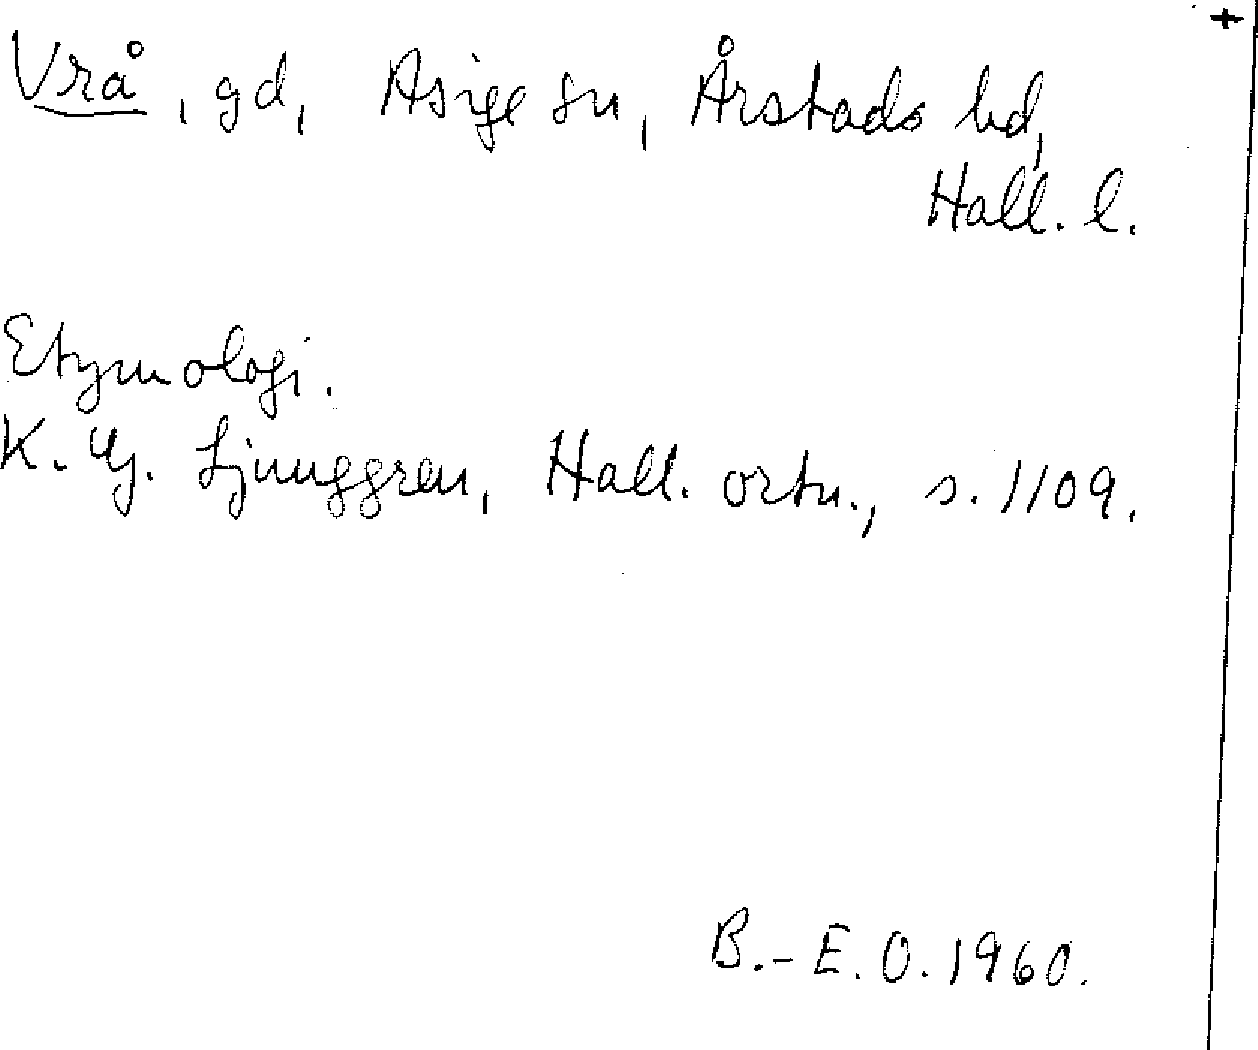 +
Vrå, gd, Asige sn, Årstads hd,
Hall. l.
Etymologi.
K. G. Ljunggren, Hall. ortn., s. 1109.
B.-E.O. 1960.